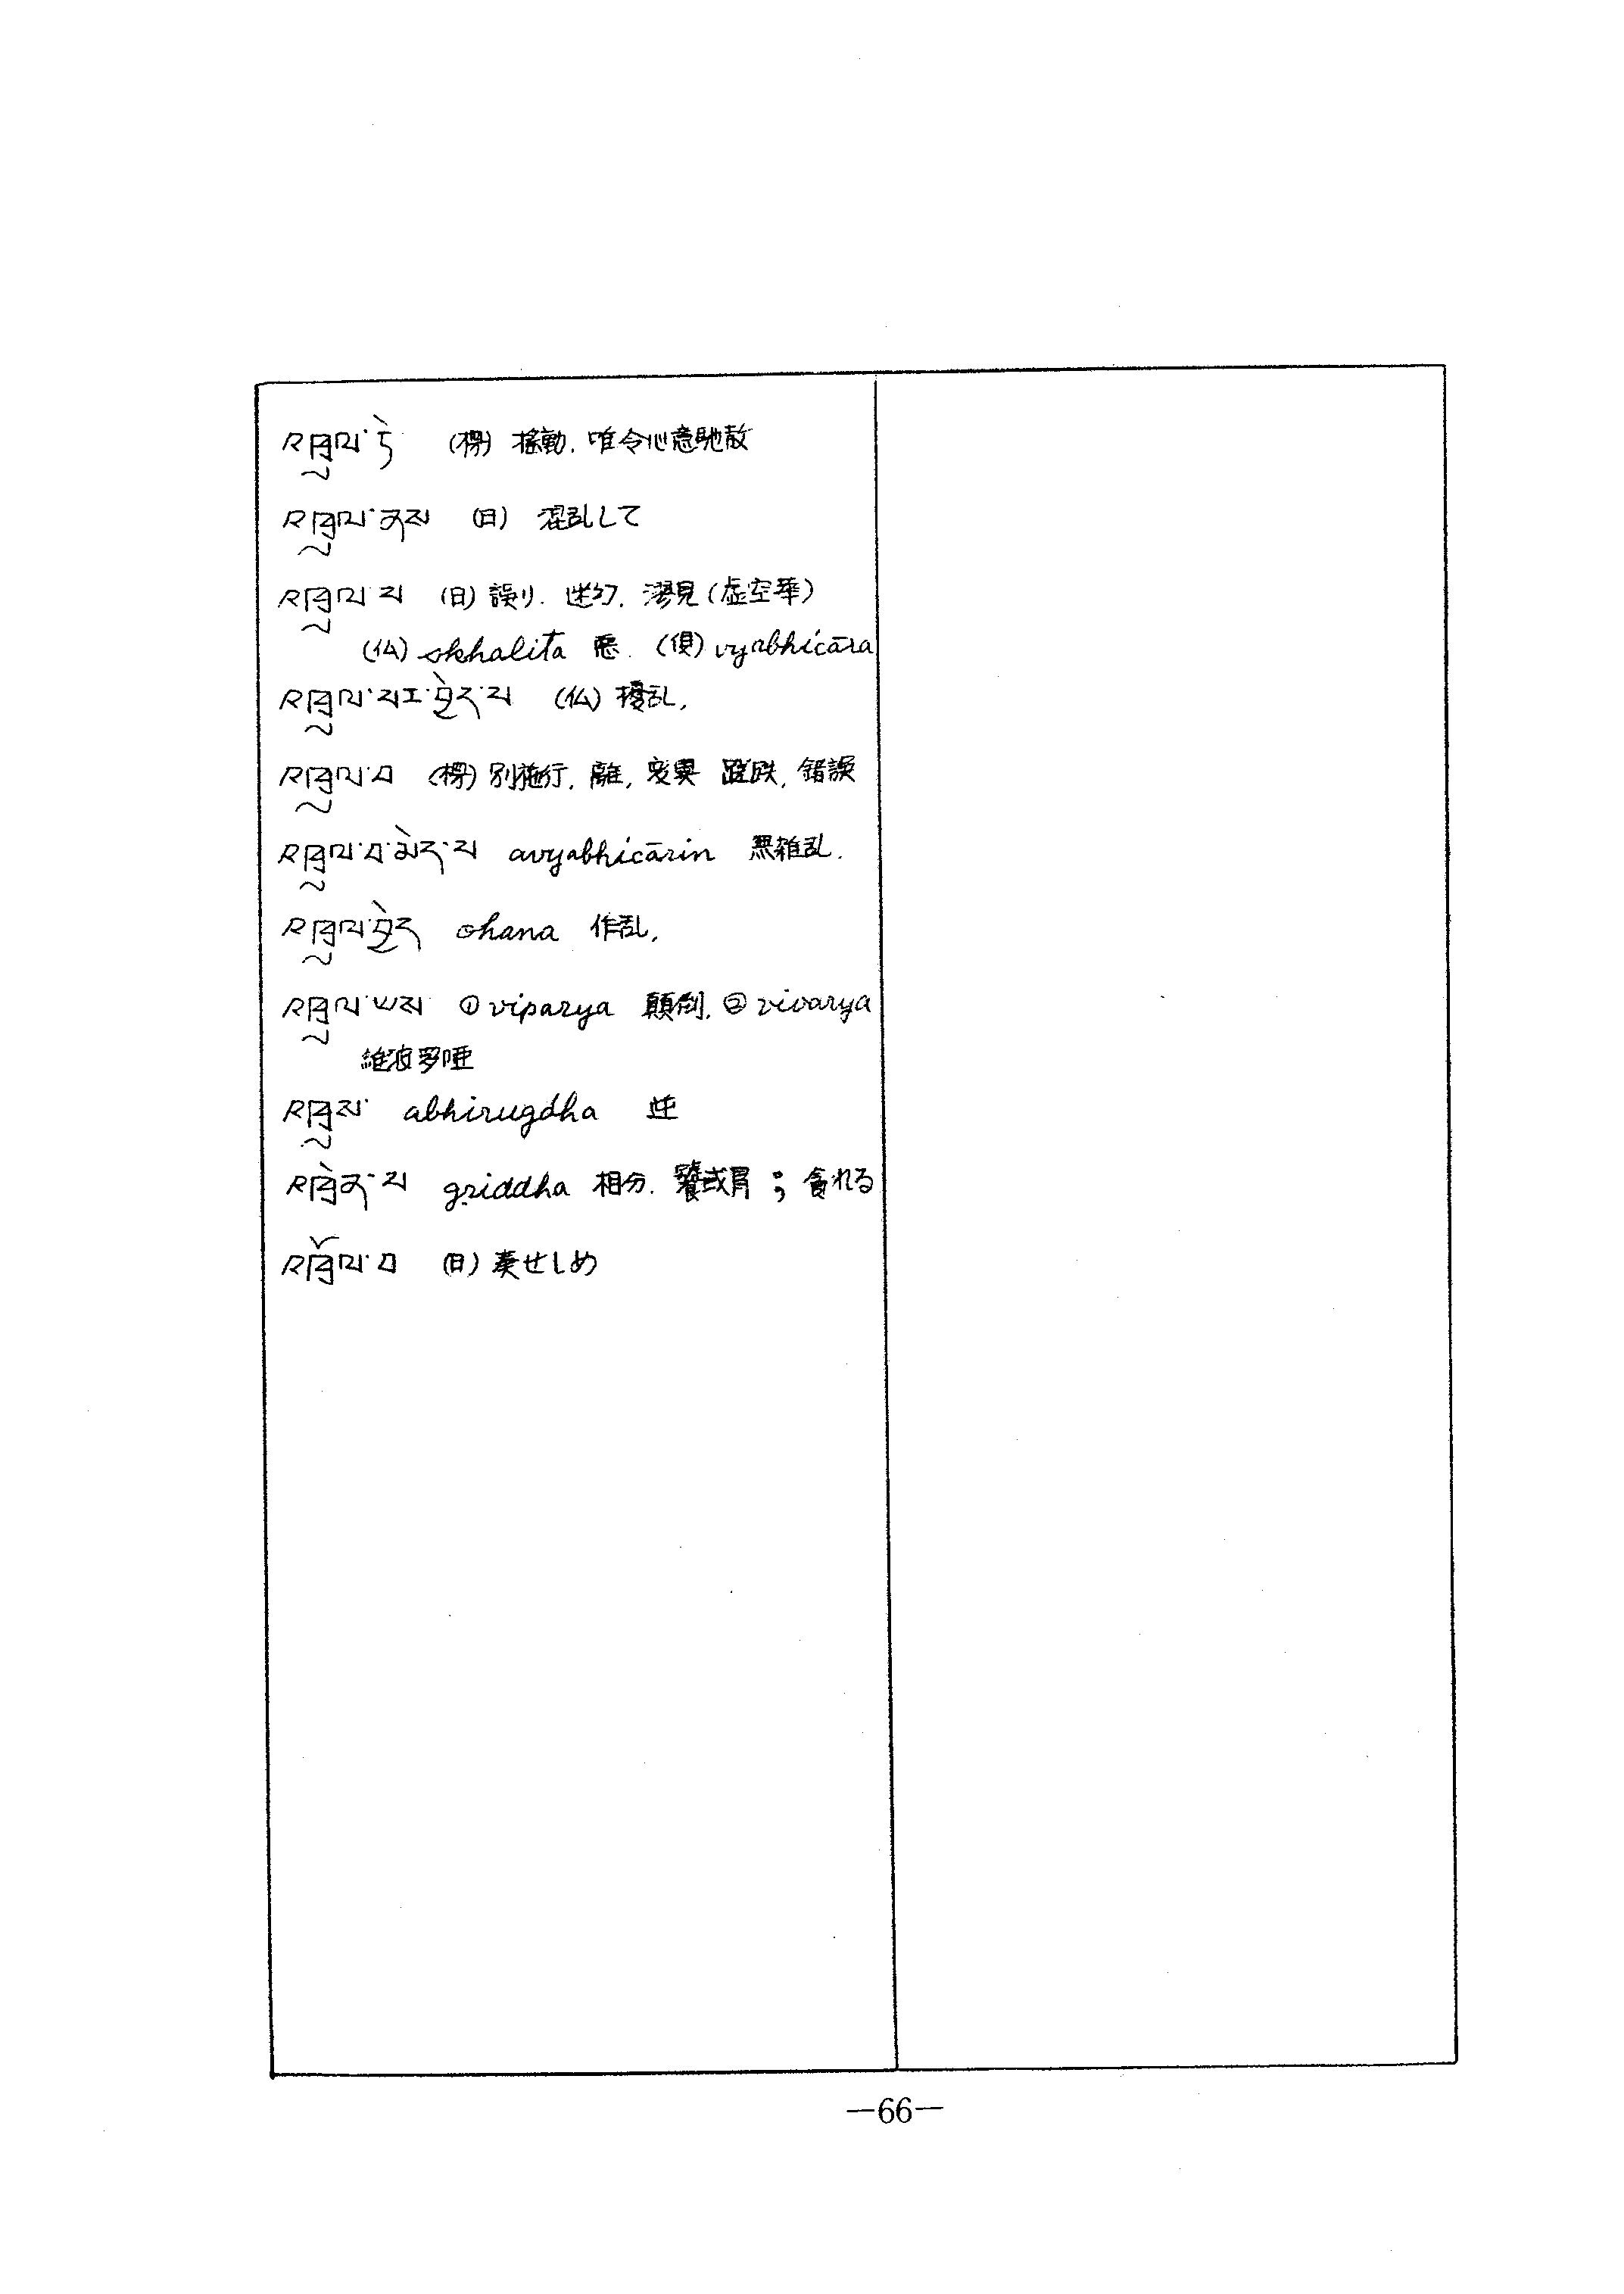 འཁྲུལ་ཏེ (楞) 搖動. 唯令心意馳散
འཁྲུལ་ནས (日) 混乱して
འཁྲུལ་པ (日) 誤り. 迷幻. 謬見 (虚空華)
(仏) skhalita 悪. (倶) vyabhicāra
འཁྲུལ་པར་བྱེད་པ (仏) 擾乱.
འཁྲུལ་བ (楞) 別施行. 離. 変異 蹉跌. 錯誤
འཁྲུལ་བ་མེད་པ avyabhicārin 無雑乱.
འཁྲུལ་བྱེད ohana 作乱.
འཁྲུལ་པ་ཡས ① viparya 顛倒. ② vivarya
維波罗唖
འཁྲུས abhirugdha 逆
འཁྲེན་པ griddha 相分. 饕或胃 ; 貪れる
འཁྲོལ་བ (日) 奏せしめ
—66—